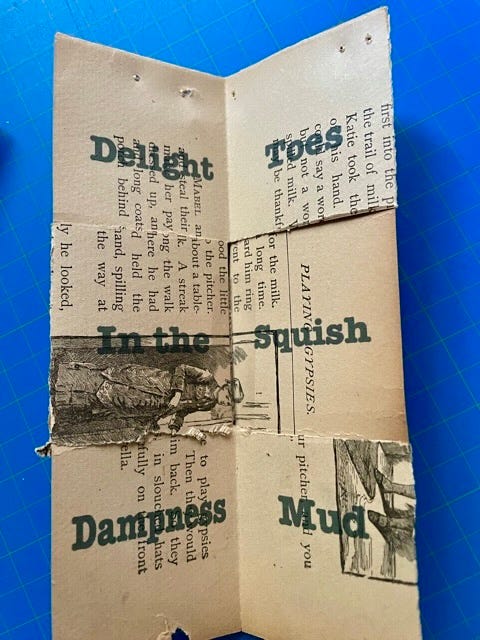 Delight
Toes
In the
Squish
Dampness
Mud
first into the p
the trail of mil
Katie took the
of his hand.
say a wor
but not a wor
milk.
be thankf
PLAYING GYPSIES.
for the milk.
long time.
ard him ring
ent to the
ood the little
the pitcher.
MABEL an
about a table-
steal their
k. A streak
her pay
ong the walk
ed up, an
here he had
long coats
d held the
behind
hand, spilling
the way at
ly he looked,
ur pitcher and you
to play gypsies
Then they would
him back. they
in slouch hats
fully on front
ella.